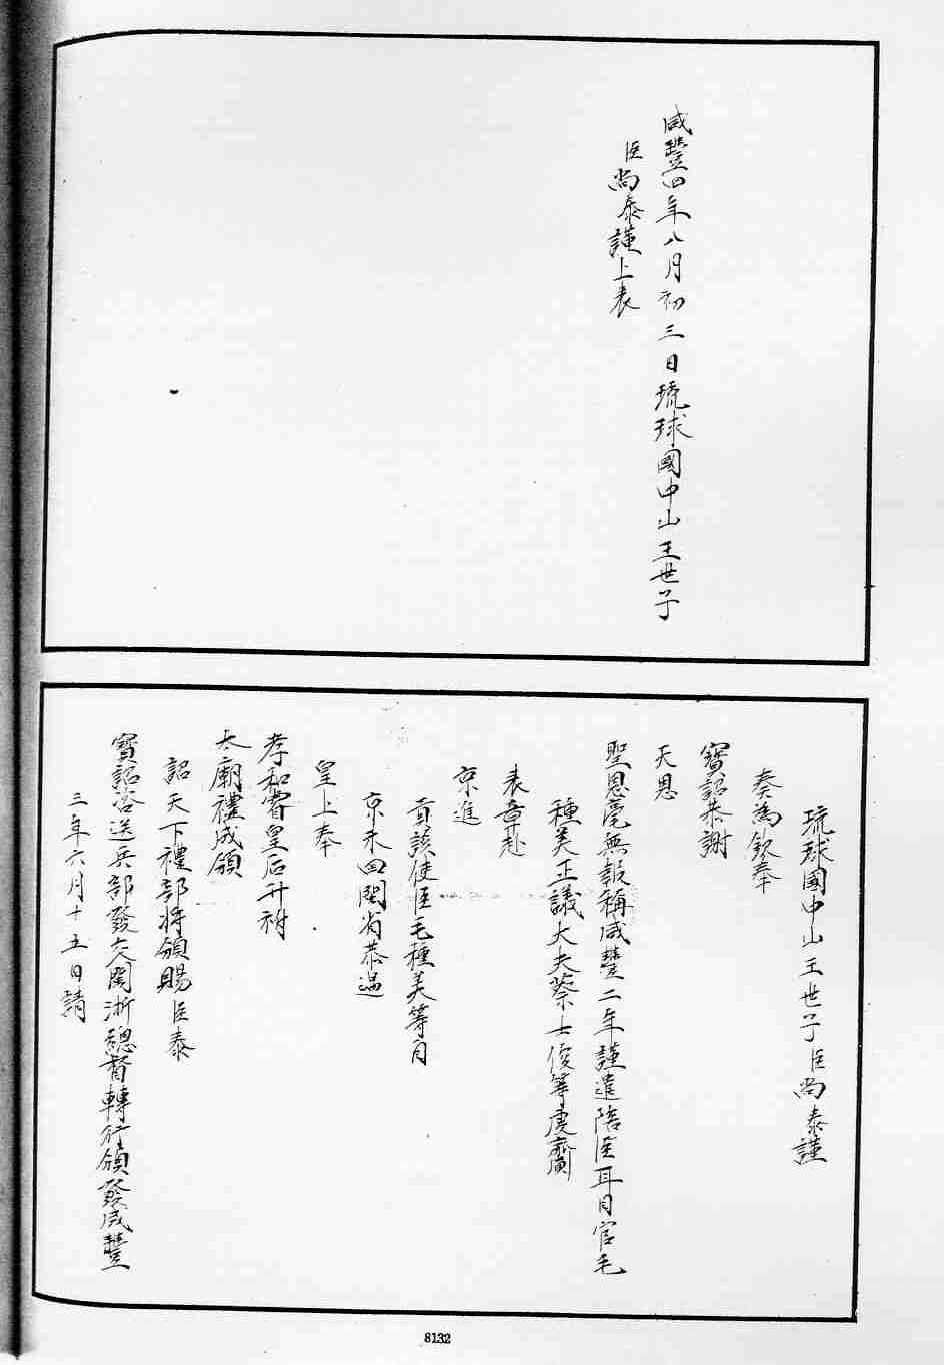 咸豐四年八月初三日琉球國中山王世子
臣尚泰謹上表
琉球國中山王世子臣尚泰謹
奏為欽奉
寶詔恭謝
天恩
聖恩毫無報稱咸豐二年謹遣陪臣耳目官毛
種美正議大夫蔡士俊等虔齎
表章赴
京進
貢該使臣毛種美等自
京來回閩省恭遇
皇上奉
孝和睿皇后升祔
太廟禮成頒
詔天下禮部將頒賜臣泰
寶詔咨送兵部發交閩浙總督轉行頒發咸豐
三年六月十五日請
8132